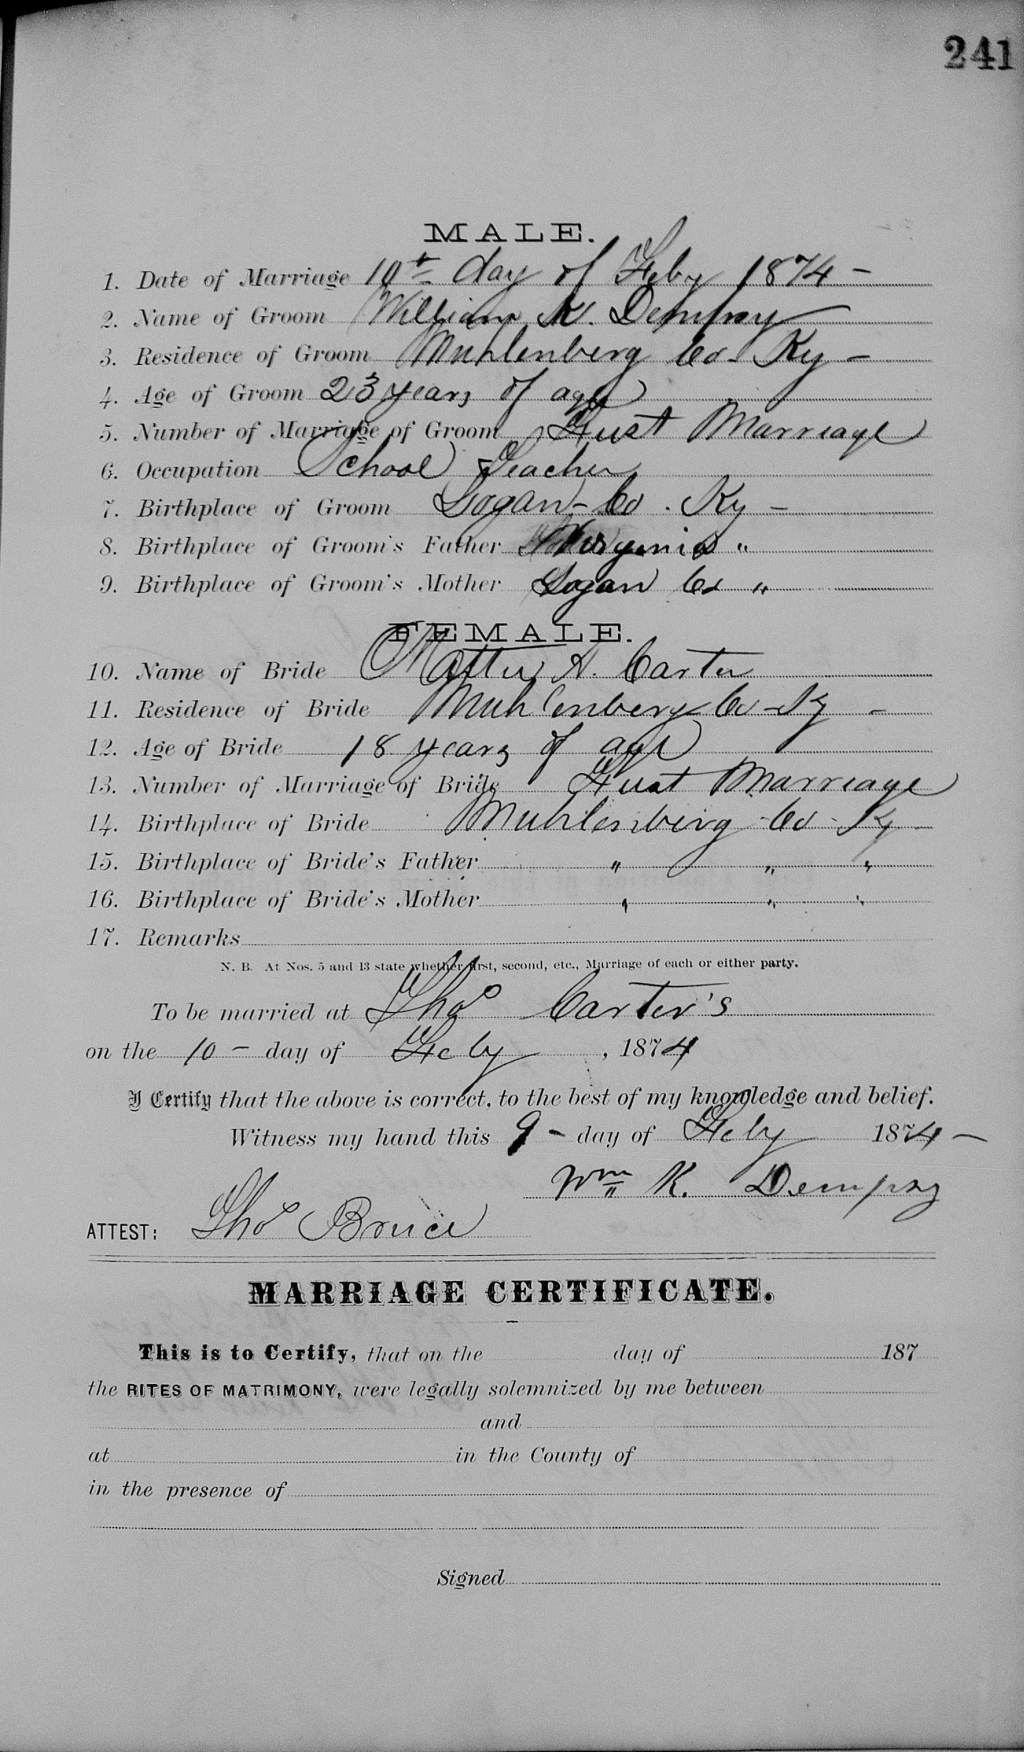 241
MALE.
1. Date of Marriage 10th day of Feby 1874 –
2. Name of Groom William K. Dempsy
3. Residence of Groom Muhlenberg Co– Ky –
4. Age of Groom 23 years of age
5. Number of Marriage of Groom First Marriage
6. Occupation School Teacher
7. Birthplace of Groom Logan – Co . Ky –
8. Birthplace of Groom's Father Virginia "
9. Birthplace of Groom's Mother Logan Co "
FEMALE.
10. Name of Bride Mattie A. Carter
11. Residence of Bride Muhlenberg Co – Ky –
12. Age of Bride 18 years of age
13. Number of Marriage of Bride First Marriage
14. Birthplace of Bride Muhlenberg Co – Ky
15. Birthplace of Bride's Father " " "
16. Birthplace of Bride's Mother " " "
17. Remarks
N. B. At Nos. 5 and 13 state whether first, second, etc., Marriage of each or either party.
To be married at Thos Carter's
on the 10 – day of Feby , 1874
I Certify that the above is correct, to the best of my knowledge and belief.
Witness my hand this 9 – day of Feby 1874 –
Wm K. Dempsy
ATTEST: Thos Bruce
MARRIAGE CERTIFICATE.
This is to Certify, that on the day of 187
the RITES OF MATRIMONY, were legally solemnized by me between
and
at in the County of
in the presence of
Signed